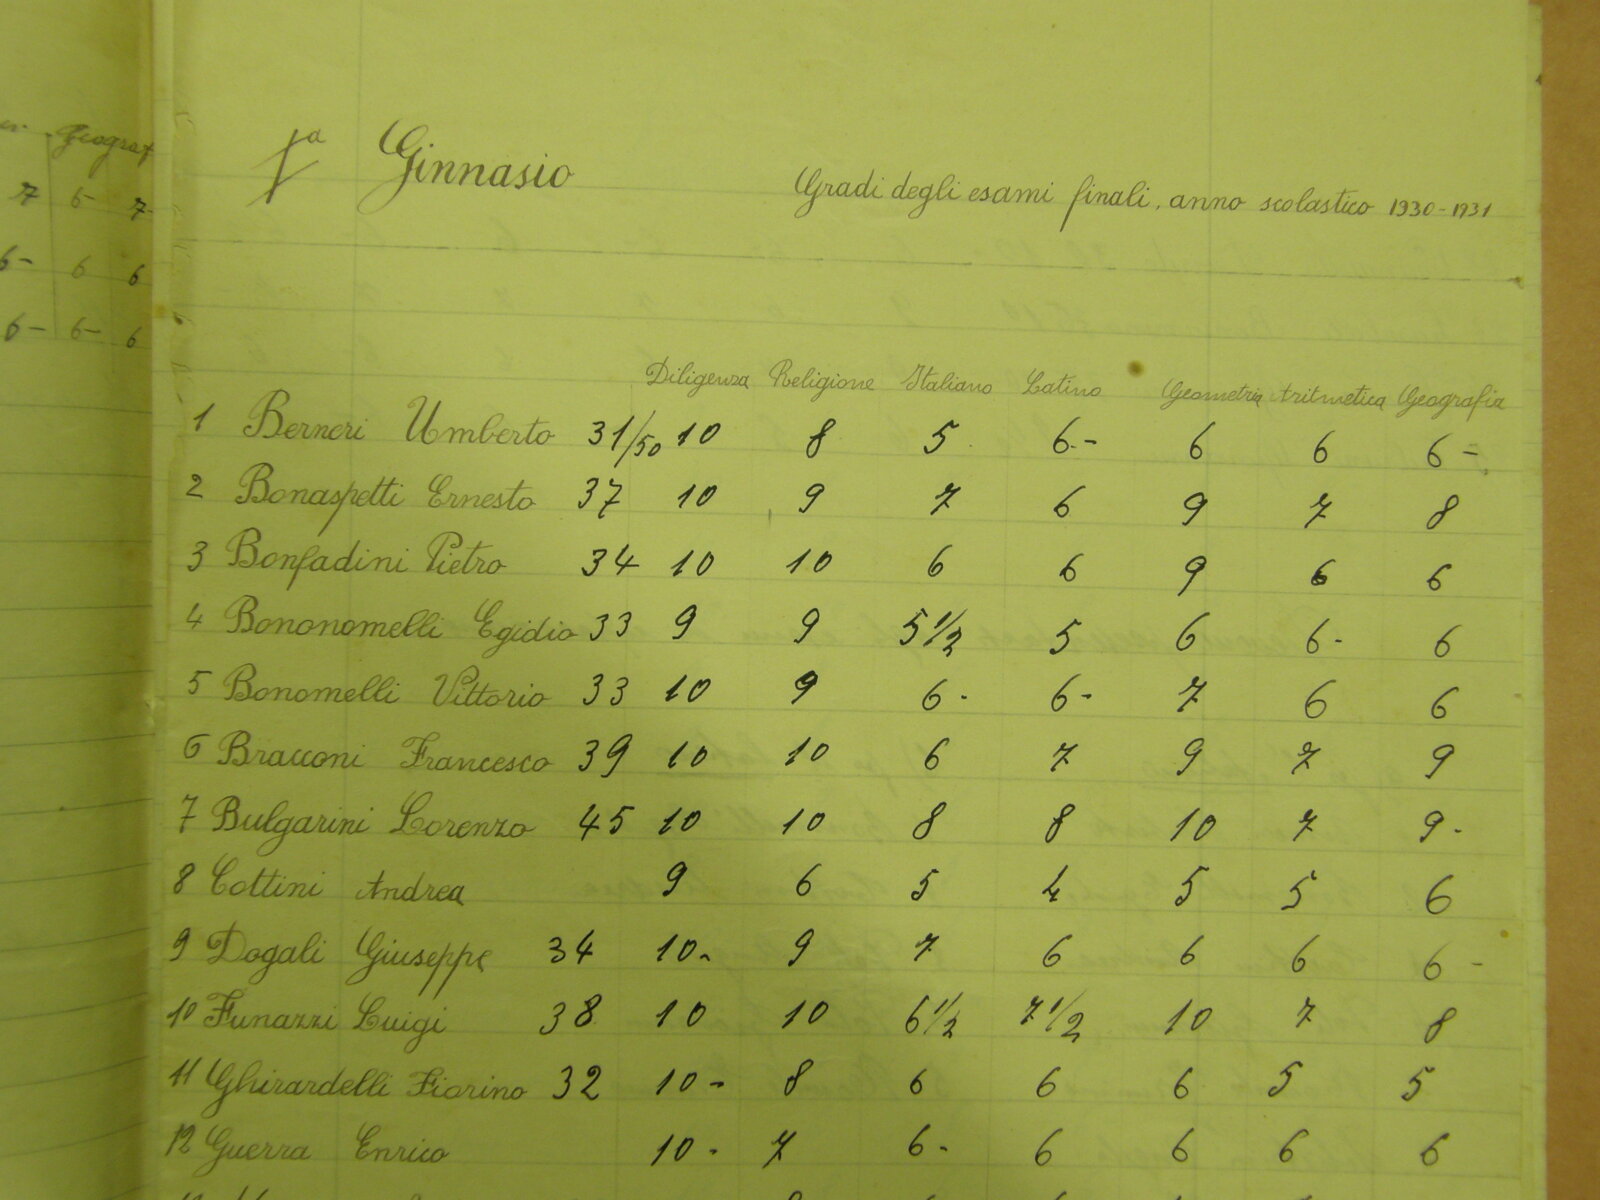 Geograf
7 6- 7-
6- 6 6
6- 6- 6
1a Ginnasio
Gradi degli esami finali, anno scolastico 1930-1931
Diligenza Religione Italiano Latino Geometria Aritmetica Geografia
1 Berneri Umberto 31/50 10 8 5 6- 6 6 6-
2 Bonaspetti Ernesto 37 10 9 7 6 9 7 8
3 Bonfadini Pietro 34 10 10 6 6 9 6 6
4 Bononomelli Egidio 33 9 9 5 1/2 5 6 6- 6
5 Bonomelli Vittorio 33 10 9 6- 6- 7 6 6
6 Bracconi Francesco 39 10 10 6 7 9 7 9
7 Bulgarini Lorenzo 45 10 10 8 8 10 7 9-
8 Cottini Andrea 9 6 5 4 5 5 6
9 Dogali Giuseppe 34 10- 9 7 6 6 6 6-
10 Funazzi Luigi 38 10 10 6 1/2 7 1/2 10 7 8
11 Ghirardelli Fiorino 32 10- 8 6 6 6 5 5
12 Guerra Enrico 10- 7 6- 6 6 6 6